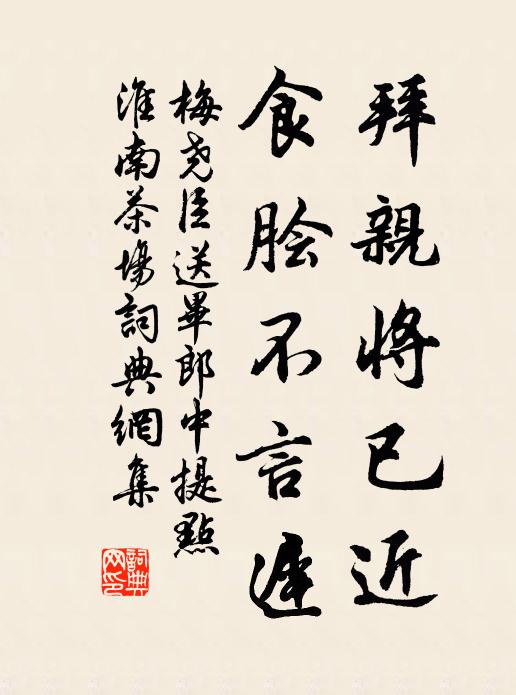 拜親將已近
食脍不言遲
梅尧臣送畢郎中提點
淮南茶場詞典網集
詞典网印